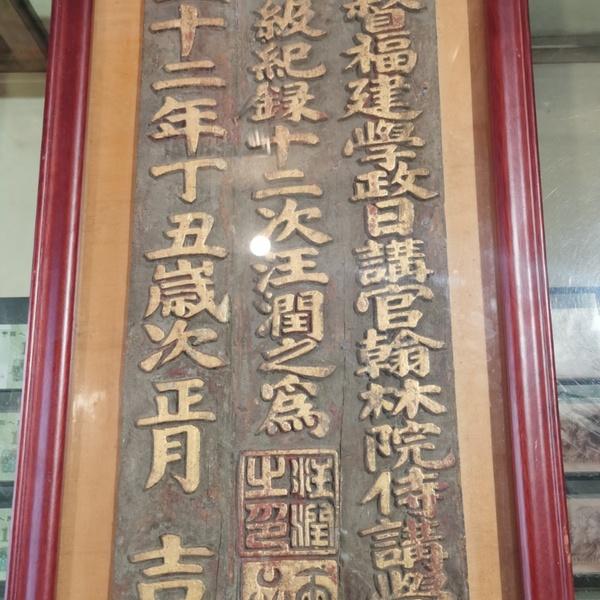 督福建學政日講官翰林院侍講學
級紀録十二次汪潤之為
汪潤之印
十二年丁丑歲次正月 吉